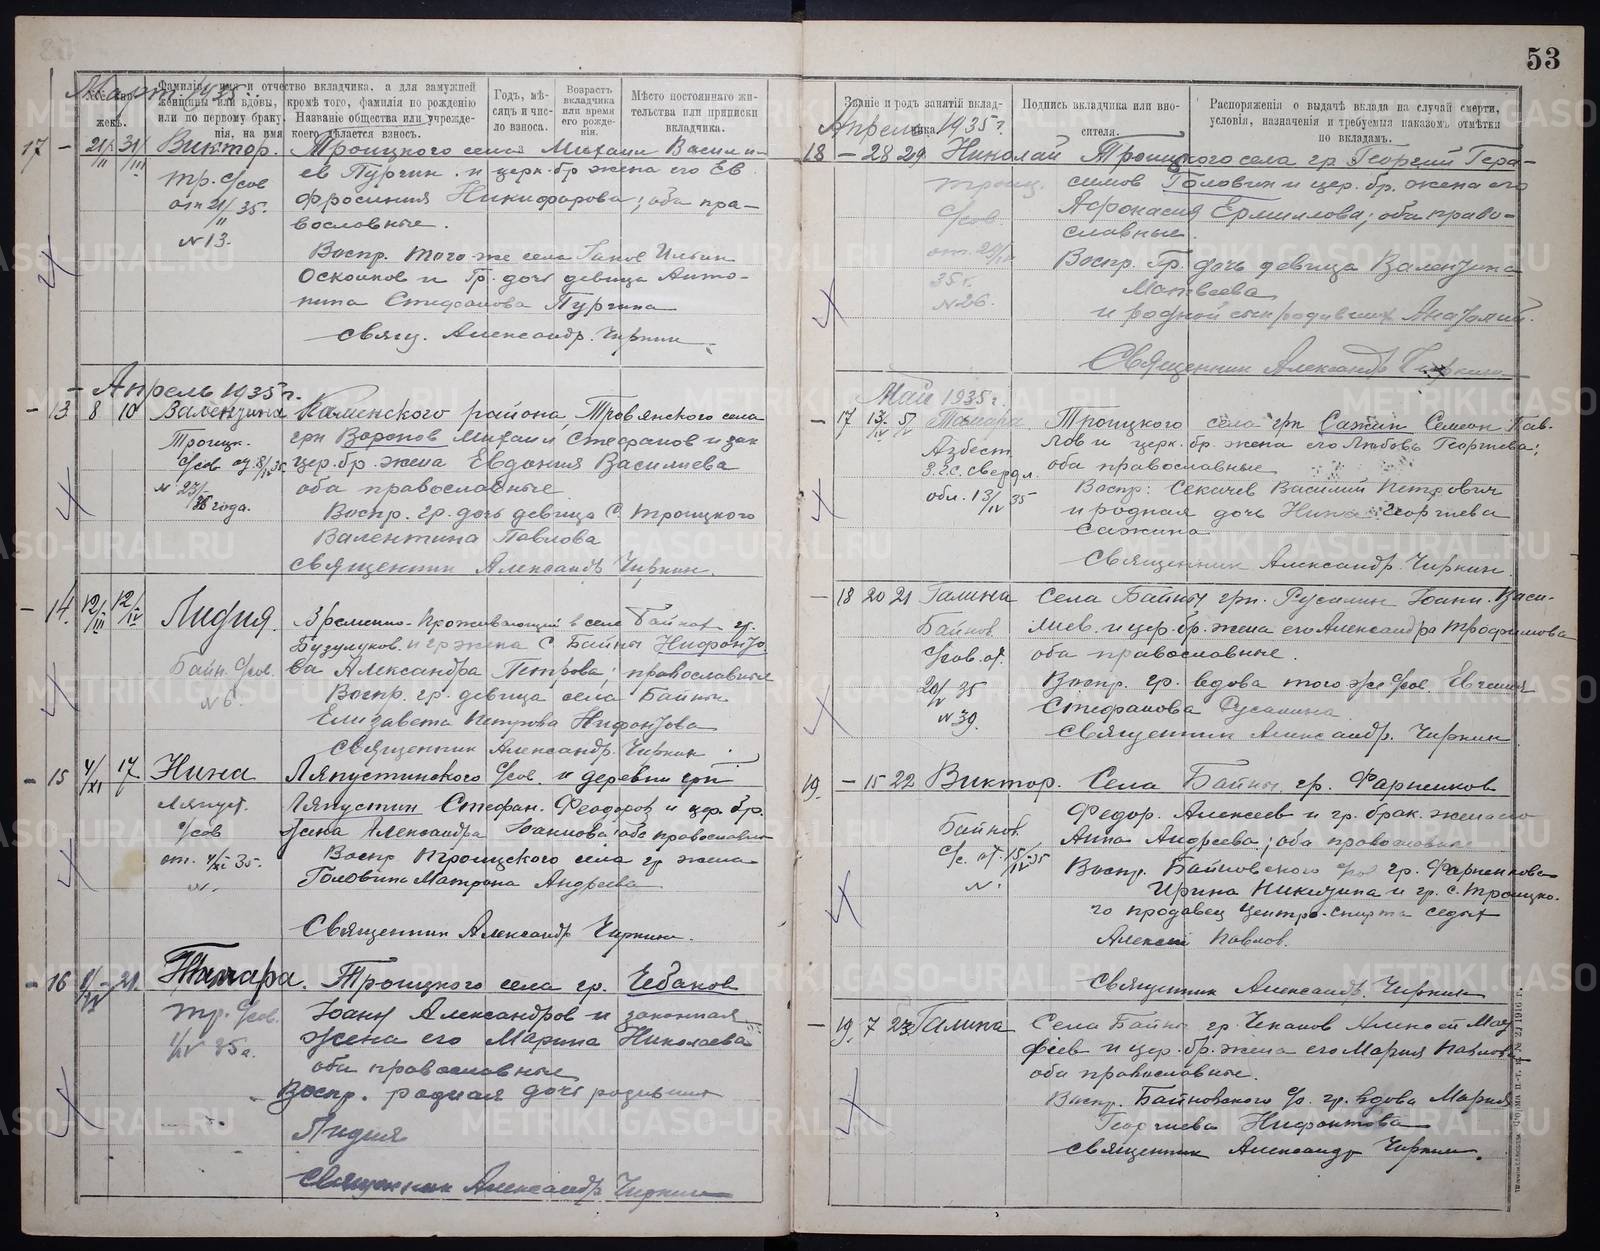 53
Март 1935
Фамилія, имя и отчество вкладчика, а для замужней
женщины или вдовы, кромѣ того, фамилія по рожденію
или по первому браку. Названіе общества или учрежде-
нія, на имя коего дѣлается взносъ.
Годъ, мѣ-
сяцъ и чис-
ло взноса.
Возрастъ
вкладчика
или время
его рожде-
нія.
Мѣсто постояннаго жи-
тельства или приписки
вкладчика.
17 - 21/II 31/III Виктор. Троицкого села Михаил Васили-
ев Пургин. и церк. бр жена его Ев
фросиния Никифорова; оба пра-
вославные.
тр. с/сов
от 21/II 35.
N 13.
Воспр. того-же села Ильин
Осколков и Гр. дочь девица Анто-
нина Стефанова Пургина
Свящ. Александр. Чиркин.
- Апрель 1935 г.
- 13 8 10 Валентина Каменского района, Травянского села
грн Воронов Михаил Стефанов и зак
цер. бр. жена Евдокия Василиева
оба православные
Троицк.
с/сов от 8/IV 35
N 23/
35 года.
Воспр. гр. дочь девица с. Троицкого
Валентина Павлова
Священник Александр Чиркин.
- 14. 12/III 12/IV Лидия. Временно-проживающий в селе Байнах гр.
Бузулуков. и гр жена с Байны Нифонто
ва Александра Петрова; православные
Байн. с/сов.
N 6
Воспр. гр. девица села Байны
Елизавета Петрова Нифонтова
Священник Александр. Чиркин
- 15 4/XI 17 Нина Ляпустинского с/сов. и деревни грн
Ляпустин Стефан. Феодоров и цер. бр.
жена Александра Иоаннова оба православные
Ляпуст.
с/сов
от. 4/XI 35.
N.
Воспр Троицкого села гр жена
Головина Матрона Андреева
Священник Александр Чиркин.
- 16 1/IV - 21 Тамара. Троицкого села гр. Чебаков
Иоанн Александров и законная
жена его Марина Николаева
оба православные
тр. с/сов.
1/IV 35 г.
Воспр. родная дочь родивших
Лидия
Священник Александр Чиркин
Званіе и родъ занятій вклад-
чика.
Подпись вкладчика или вно-
сителя.
Распоряженія о выдачѣ вклада на случай смерти,
условія, назначенія и требуемыя наказомъ отмѣтки
по вкладамъ.
Апрель 1935 г.
18 - 28 29 Николай Троицкого села гр Георгий Гера-
симов Головин и цер. бр. жена его
Афонасия Ермиилова; оба право-
славные.
троиц.
с/сов.
от. 28/IV
35 г.
N 26.
Воспр. Гр. дочь девица Валентина
Матвеева
и родной сын родивших Анатолий.
Священник Александр Чиркин
Май 1935 г.
- 17 13/IV 5/V Тамара Троицкого села грн Сажин Семеон Пав-
лов и церк. бр. жена его Любовь Георгиева;
оба православные
Азбест.
З.с. Свердл.
обл. 13/IV 35
Воспр: Секачев Василий Петрович
и родная дочь Нина Георгиева
Сажина
Священник Александр Чиркин.
- 18 20 21 Галина Села Байны грн. Русалин Иоанн. Васи-
лиев. и цер. бр. жена его Александра Трофимова
оба православные.
Байнов.
с/сов. от.
20/V 35
N 39.
Воспр. гр. вдова того же с/сов. Евгения
Стефанова Русалина.
Священник Александр. Чиркин
19. - 15 22 Виктор. Села Байны гр. Фарненков
Федор. Алексеев и гр. брак. жена его
Анна Андреева; оба православные
Байнов.
с/с. от 15/IV-35
N.
Воспр. Байновского с/сов гр. Фарненкова
Ирина Никитина и гр. с. Троицко-
го продавец Центро-спирта седых
Алексей Павлов.
Священник Александр. Чиркин
- 19. 7 23 Галина Села Байны гр. Чеканов Алексей Мат
фиев и цер. бр. жена его Мария Павлова
оба православные.
Воспр. Байновского с/с. гр. вдова Мария
Георгиева Нифонтова
Священник Александр Чиркин.
METRIKI.GASO-URAL.RU